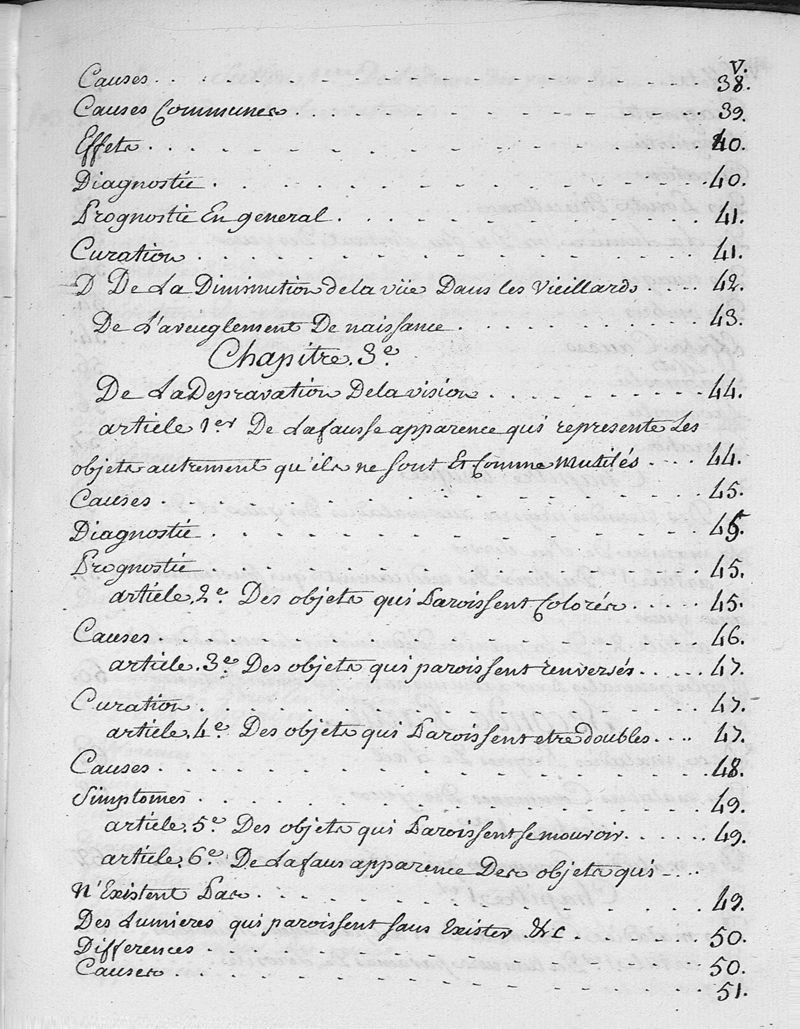 v.
Causes. . . . . . . . . . . . 38.
Causes Communes . . . . . . . . . . 39.
Effets . . . . . . . . . . . . 40.
Diagnostic . . . . . . . . . . . 40.
Prognostic En general . . . . . . . . . 41.
Curation . . . . . . . . . . . 41.
D De La Diminution de la vüe Dans les Vieillards . . . . 42.
De L'aveuglement De naissance . . . . . . . 43.
Chapitre. 3.e
De La Depravation De la vision . . . . . . . 44.
article 1er De La fausse apparence qui represente Les
objets autrement qu'ils ne sont Et Comme Mutilés . . . . 44.
Causes . . . . . . . . . . . 45.
Diagnostic . . . . . . . . . . . 45.
Prognostic . . . . . . . . . . . 45.
article. 2.e Des objets qui Paroissent Colorés . . . . . 45.
Causes . . . . . . . . . . . 46.
article. 3.e Des objets qui paroissent renversés . . . . . 47.
Curation . . . . . . . . . . . 47.
article. 4.e Des objets qui Paroissent etre doubles . . . . 47.
Causes . . . . . . . . . . . 48.
Simptomes . . . . . . . . . . . 49.
article. 5.e Des objets qui Paroissent se mouvoir . . . . . 49.
article. 6.e De La faus apparence Des objets qui . . .
n'Existent Pas . . . . . . . . . . . 49.
Des Lumieres qui paroissent sans Exister &c . . . . . 50.
Differences . . . . . . . . . . . 50.
Causes . . . . . . . . . . . 51.